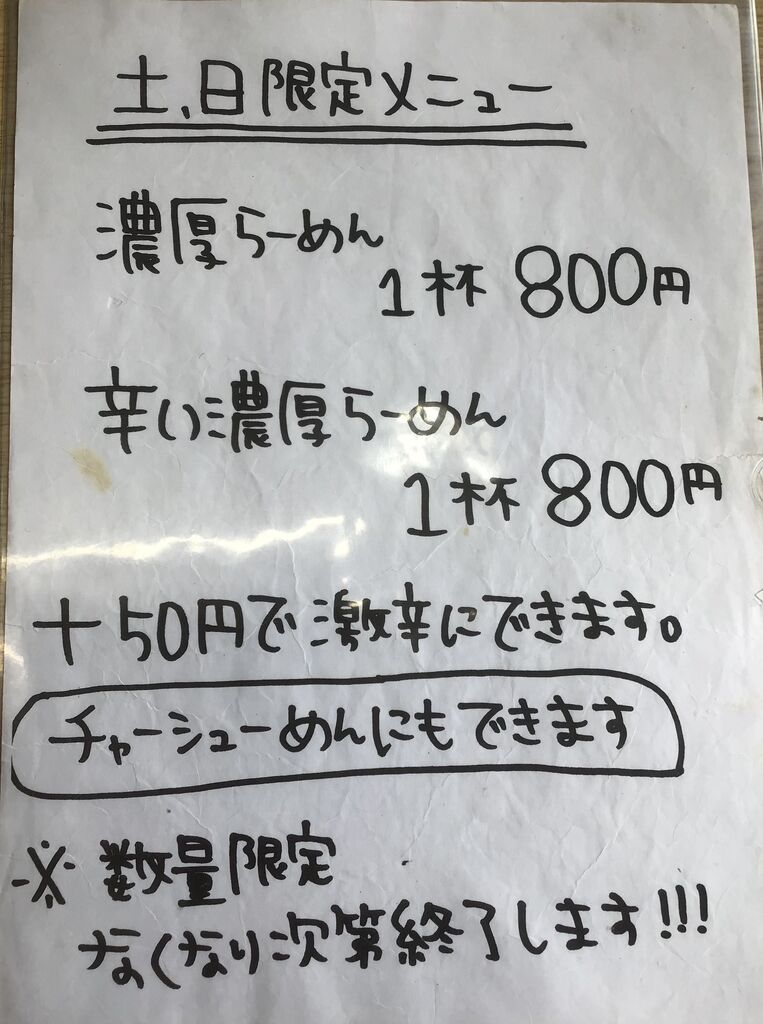 土、日限定メニュー
濃厚らーめん
1杯 800円
辛い濃厚らーめん
1杯 800円
+50円で激辛にできます。
チャーシューめんにもできます
※ 数量限定
なくなり次第終了します!!!